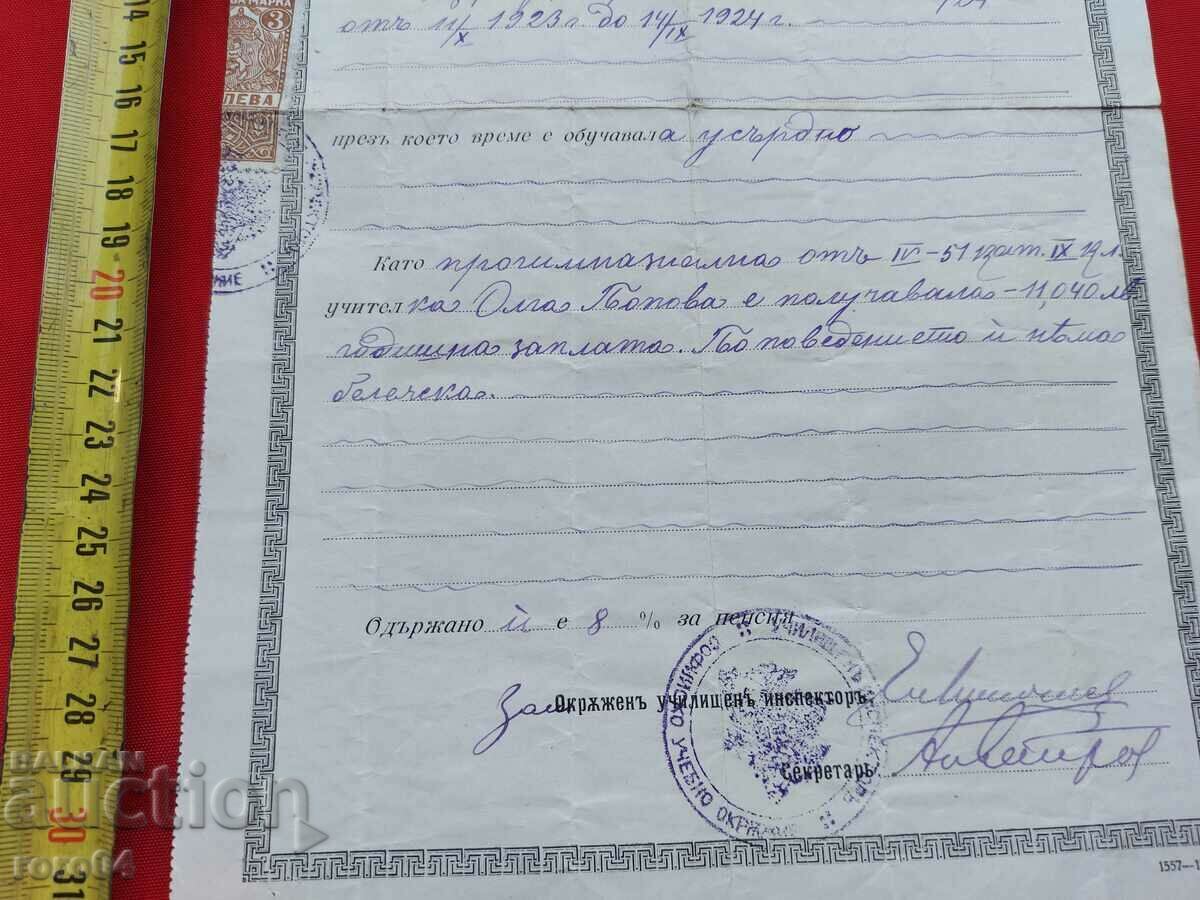 МАРКА
3
ЛЕВА
отъ 11/X 1923 г. до 14/IX 1924 г.
презъ което време е обучавала усърдно
Като прогимназиална отъ IV-51 кат. IX
учителка Олга Попова е получавала - 11,040 лв
годишна заплата. По поведението ѝ нѣма
белечска.
Одържано ѝ е 8 % за пенсия
Зам. Окрѫженъ училищенъ инспекторъ
Секретарь
УЧИЛИЩЕНЪ ИНСПЕКТОРЪ
УЧЕБНО
1557—1
14
15
16
17
18
19
20
21
22
23
24
25
26
27
28
29
30
31
BALKAN
Auction
roxo04